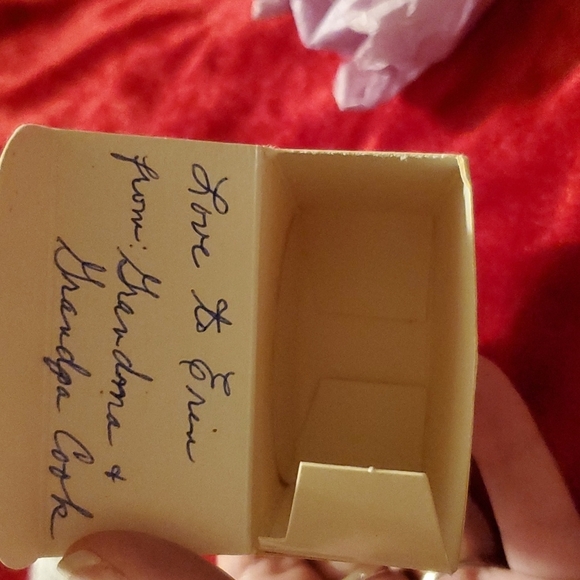 Love to Erin
from: Grandma &
Grandpa Cook